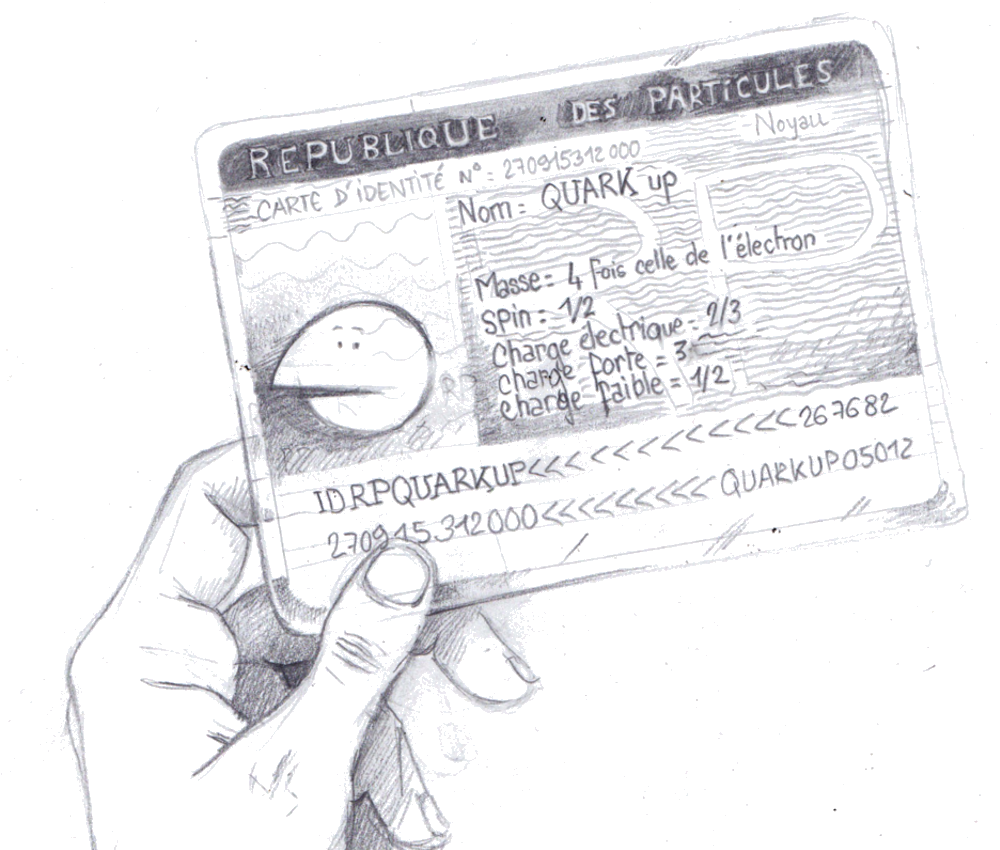 REPUBLIQUE DES PARTiCULES
Noyau
CARTE D'iDENTiTÉ N° : 270915312 000
Nom = QUARK up
Masse = 4 fois celle de l'électron
spin : 1/2
Charge électrique = 2/3
charge forte = 3
charge faible = 1/2
IDRPQUARKUP<<<<<<<<<<<267682
270915.312000<<<<<<<<<QUARKUP05012